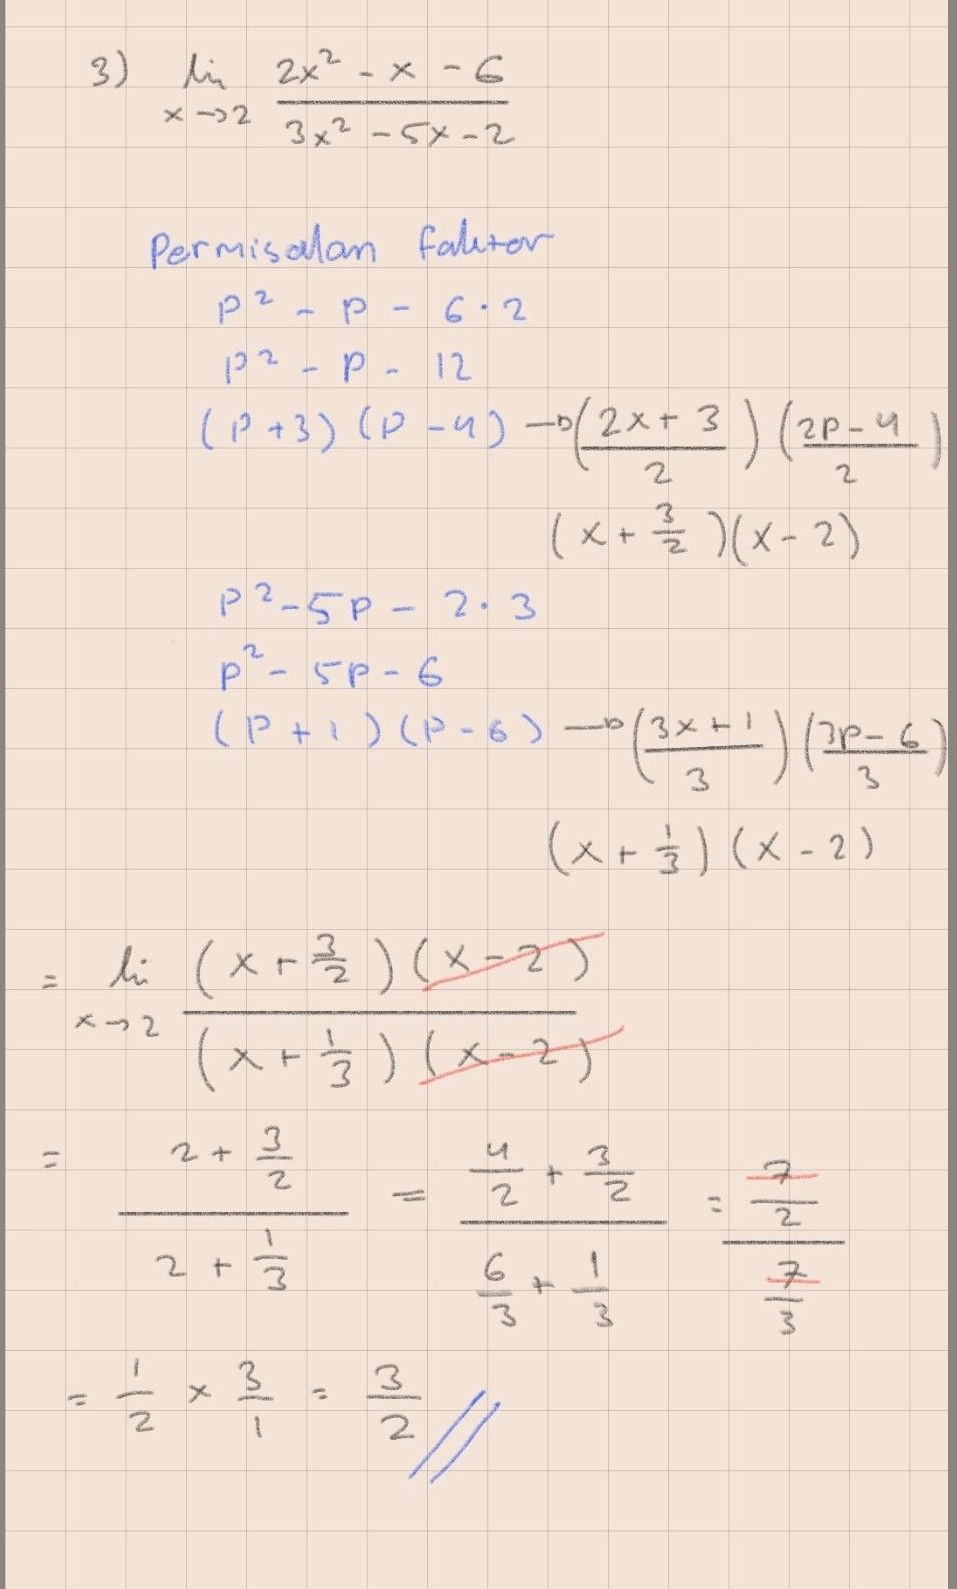 3) lim x→2 (2x² - x - 6)/(3x² - 5x - 2)
Permisalan faktor
p² - p - 6 · 2
p² - p - 12
(p + 3) (p - 4) → ((2x + 3)/2) ((2p - 4)/2)
(x + 3/2) (x - 2)
p² - 5p - 2 · 3
p² - 5p - 6
(p + 1) (p - 6) → ((3x + 1)/3) ((3p - 6)/3)
(x + 1/3) (x - 2)
= lim x→2 ((x + 3/2) (x - 2))/((x + 1/3) (x - 2))
= (2 + 3/2)/(2 + 1/3) = (4/2 + 3/2)/(6/3 + 1/3) = (7/2)/(7/3)
= 1/2 × 3/1 = 3/2 //